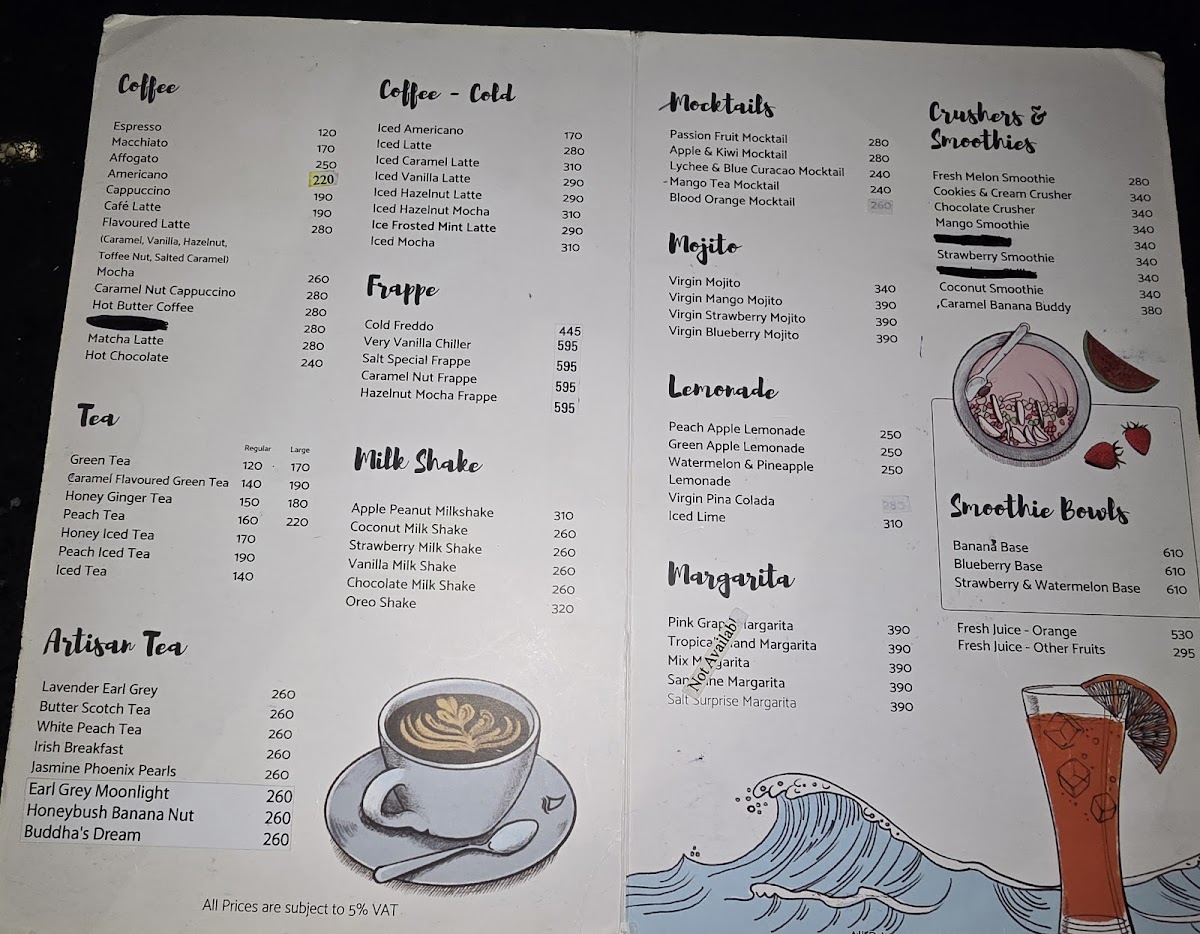 Coffee
Espresso 120
Macchiato 170
Affogato 250
Americano 220
Cappuccino 190
Café Latte 190
Flavoured Latte 280
(Caramel, Vanilla, Hazelnut,
Toffee Nut, Salted Caramel)
Mocha 260
Caramel Nut Cappuccino 280
Hot Butter Coffee 280
280
Matcha Latte 280
Hot Chocolate 240
Tea
Regular Large
Green Tea 120 170
Caramel Flavoured Green Tea 140 190
Honey Ginger Tea 150 180
Peach Tea 160 220
Honey Iced Tea 170
Peach Iced Tea 190
Iced Tea 140
Artisan Tea
Lavender Earl Grey 260
Butter Scotch Tea 260
White Peach Tea 260
Irish Breakfast 260
Jasmine Phoenix Pearls 260
Earl Grey Moonlight 260
Honeybush Banana Nut 260
Buddha's Dream 260
Coffee - Cold
Iced Americano 170
Iced Latte 280
Iced Caramel Latte 310
Iced Vanilla Latte 290
Iced Hazelnut Latte 290
Iced Hazelnut Mocha 310
Ice Frosted Mint Latte 290
Iced Mocha 310
Frappe
Cold Freddo 445
Very Vanilla Chiller 595
Salt Special Frappe 595
Caramel Nut Frappe 595
Hazelnut Mocha Frappe 595
Milk Shake
Apple Peanut Milkshake 310
Coconut Milk Shake 260
Strawberry Milk Shake 260
Vanilla Milk Shake 260
Chocolate Milk Shake 260
Oreo Shake 320
All Prices are subject to 5% VAT
Mocktails
Passion Fruit Mocktail 280
Apple & Kiwi Mocktail 280
Lychee & Blue Curacao Mocktail 240
Mango Tea Mocktail 240
Blood Orange Mocktail 260
Mojito
Virgin Mojito 340
Virgin Mango Mojito 390
Virgin Strawberry Mojito 390
Virgin Blueberry Mojito 390
Lemonade
Peach Apple Lemonade 250
Green Apple Lemonade 250
Watermelon & Pineapple 250
Lemonade
Virgin Pina Colada 280
Iced Lime 310
Margarita
Pink Grap Margarita 390
Tropical Island Margarita 390
Mix Margarita 390
Margarita 390
Salt Surprise Margarita 390
Not Availabl
Crushers &
Smoothies
Fresh Melon Smoothie 280
Cookies & Cream Crusher 340
Chocolate Crusher 340
Mango Smoothie 340
340
Strawberry Smoothie 340
340
Coconut Smoothie 340
Caramel Banana Buddy 380
Smoothie Bowls
Banana Base 610
Blueberry Base 610
Strawberry & Watermelon Base 610
Fresh Juice - Orange 530
Fresh Juice - Other Fruits 295